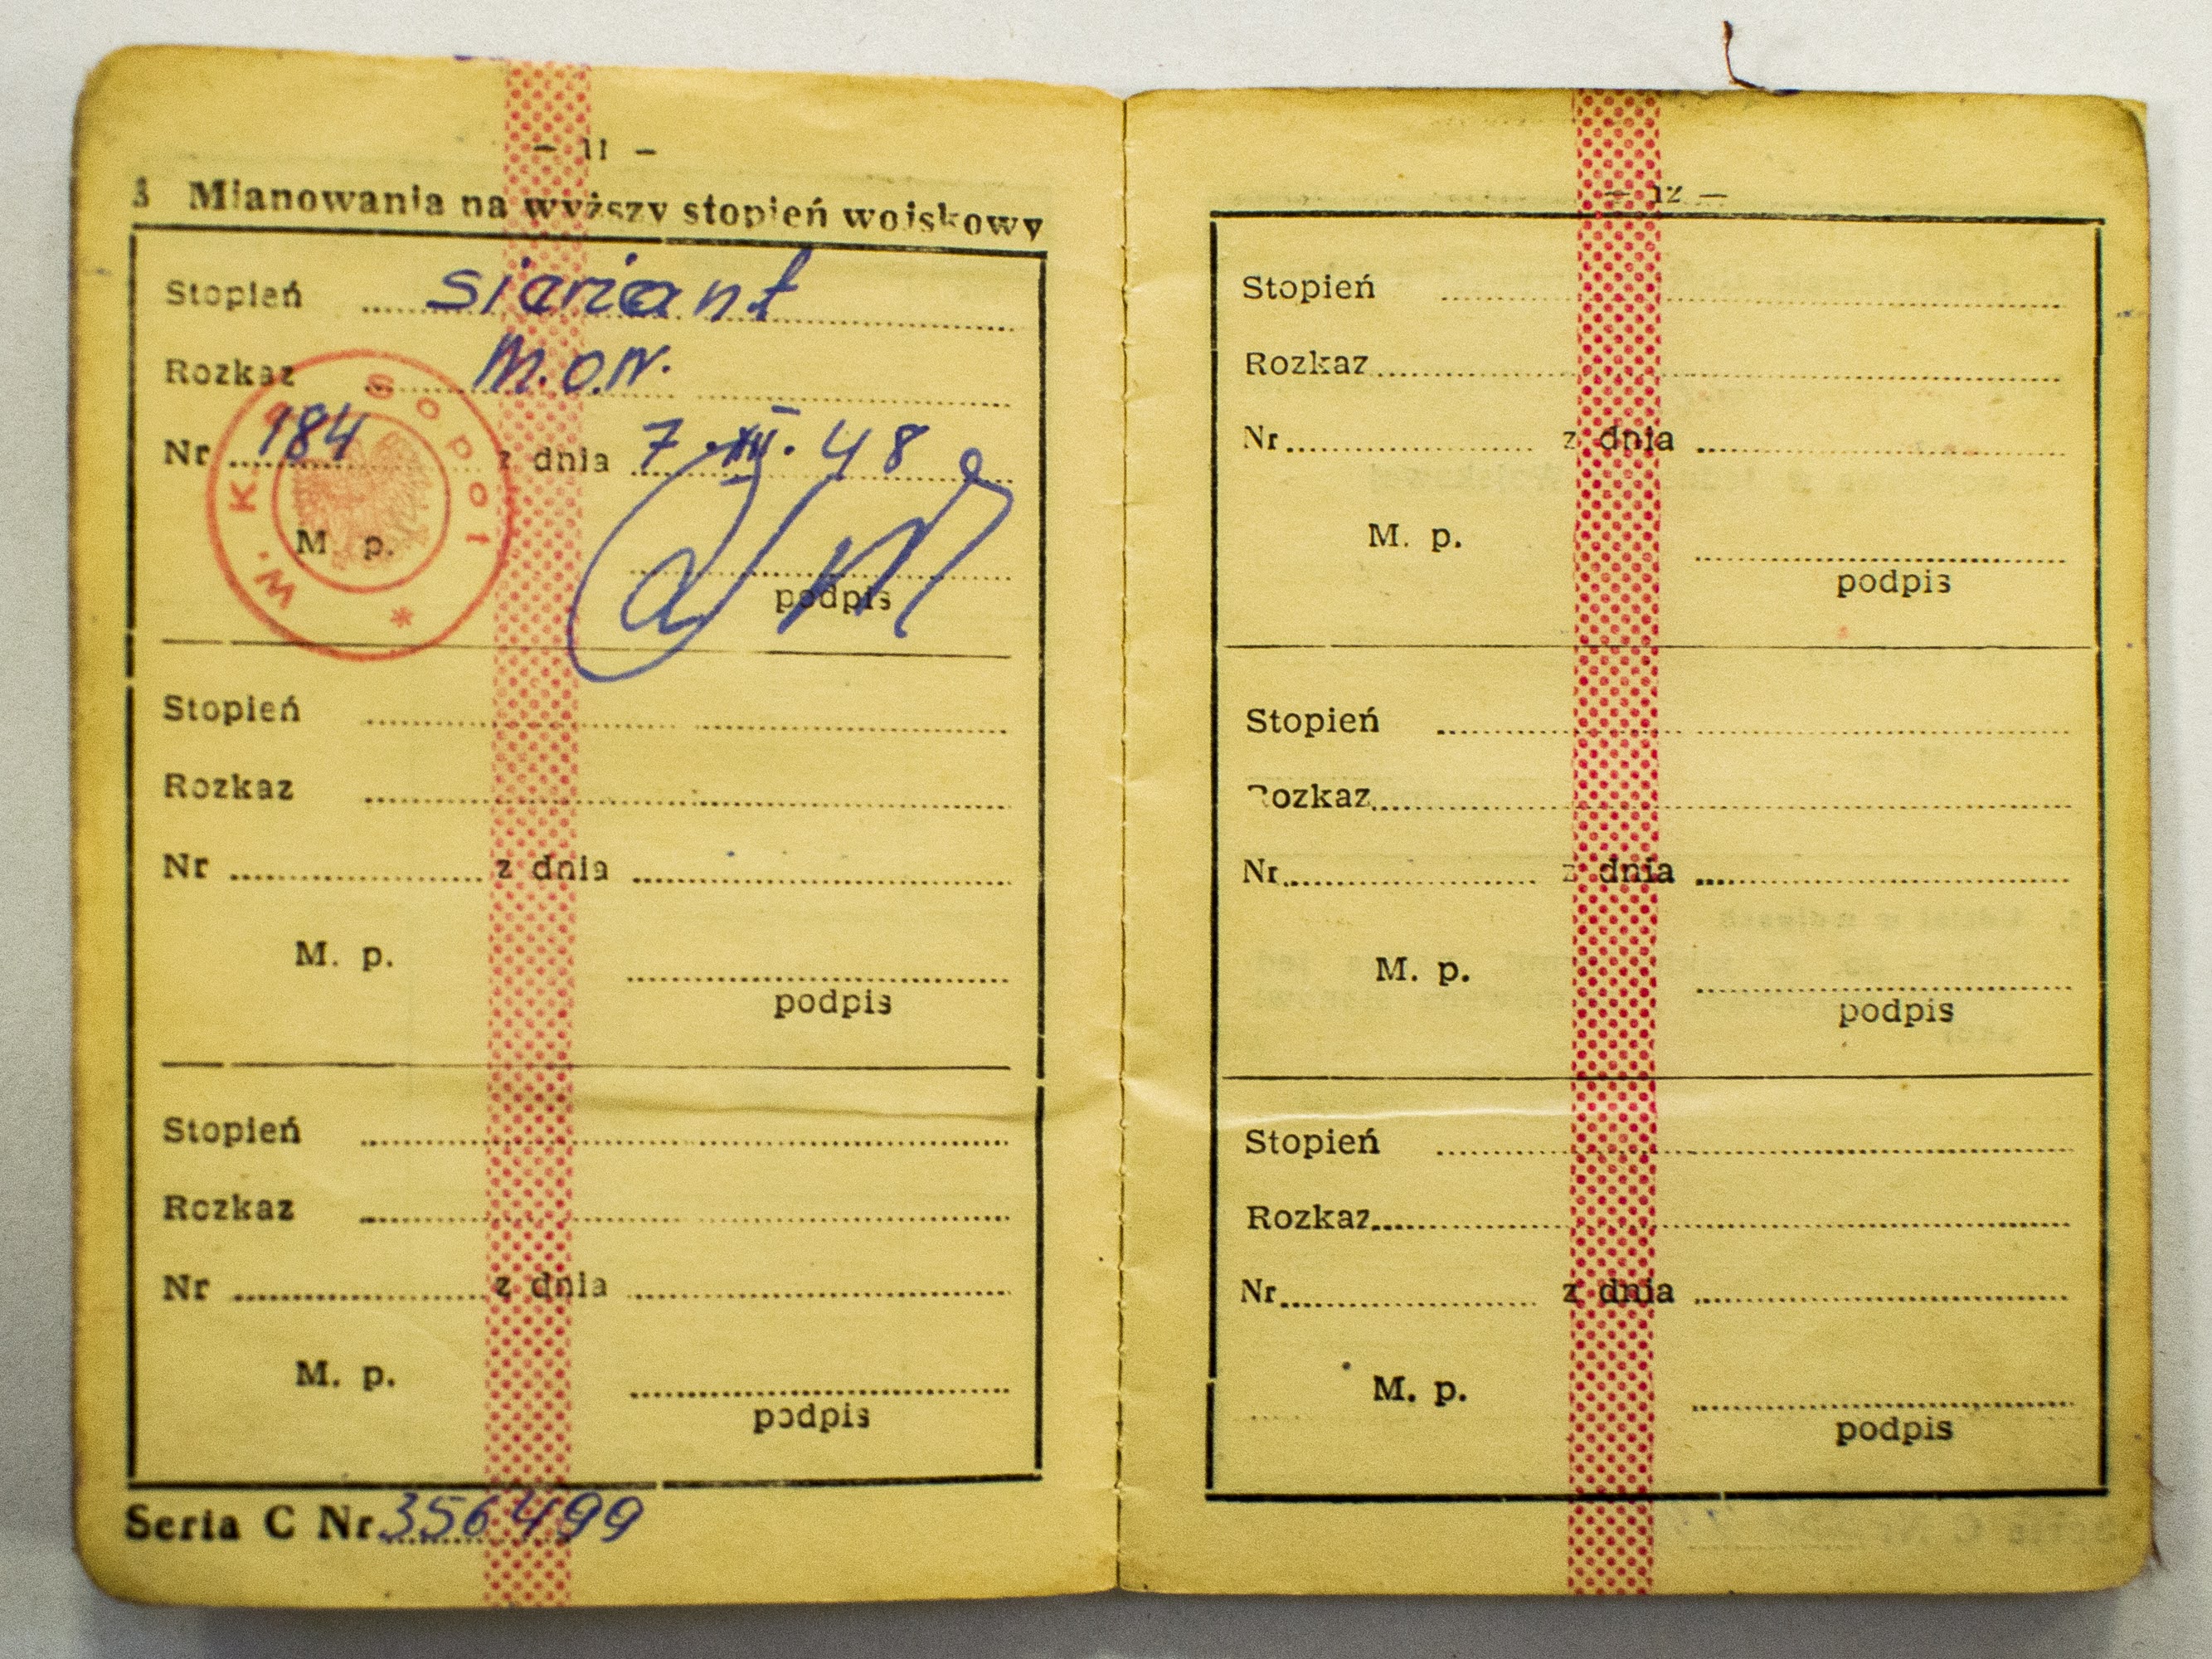 — 11 —
Mianowania na wyższy stopień wojskowy
Stopień sierżant
Rozkaz M.O.N.
Nr 184 z dnia 7.XII.48
M. p.
W. K. R. Sopot *
podpis
Stopień
Rozkaz
Nr z dnia
M. p.
podpis
Stopień
Rozkaz
Nr z dnia
M. p.
podpis
Seria C Nr 356499
— 12 —
Stopień
Rozkaz
Nr z dnia
M. p.
podpis
Stopień
Rozkaz
Nr z dnia
M. p.
podpis
Stopień
Rozkaz
Nr z dnia
M. p.
podpis